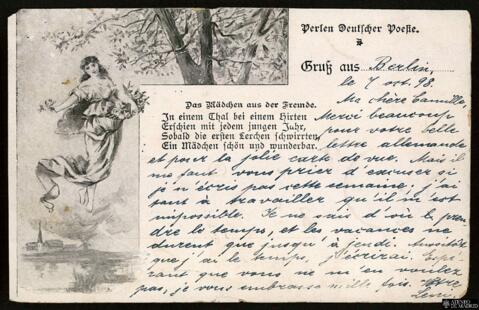 Perlen Deutscher Poesie.
Gruß aus Berlin,
le 7 oct. 98.
Das Mädchen aus der Fremde.
In einem Thal bei einem Hirten
Erschien mit jedem jungen Jahr,
Sobald die ersten Lerchen schwirrten,
Ein Mädchen schön und wunderbar.
Ma chère Camille,
Merci beaucoup
pour votre belle
lettre allemande
et pour la jolie carte de vue. Mais il
me faut vous prier d'excuser si
je n'écris pas cette semaine; j'ai
tant à travailler qu'il m'est
impossible. Je ne sais d'où le pren-
dre le temps, et les vacances ne
durent que jusqu'à jeudi. Aussitôt
que j'ai le temps, j'écrirai. Espé-
rant que vous ne m'en voulez
pas, je vous embrasse mille fois. Votre
ATENEO
DE MADRID